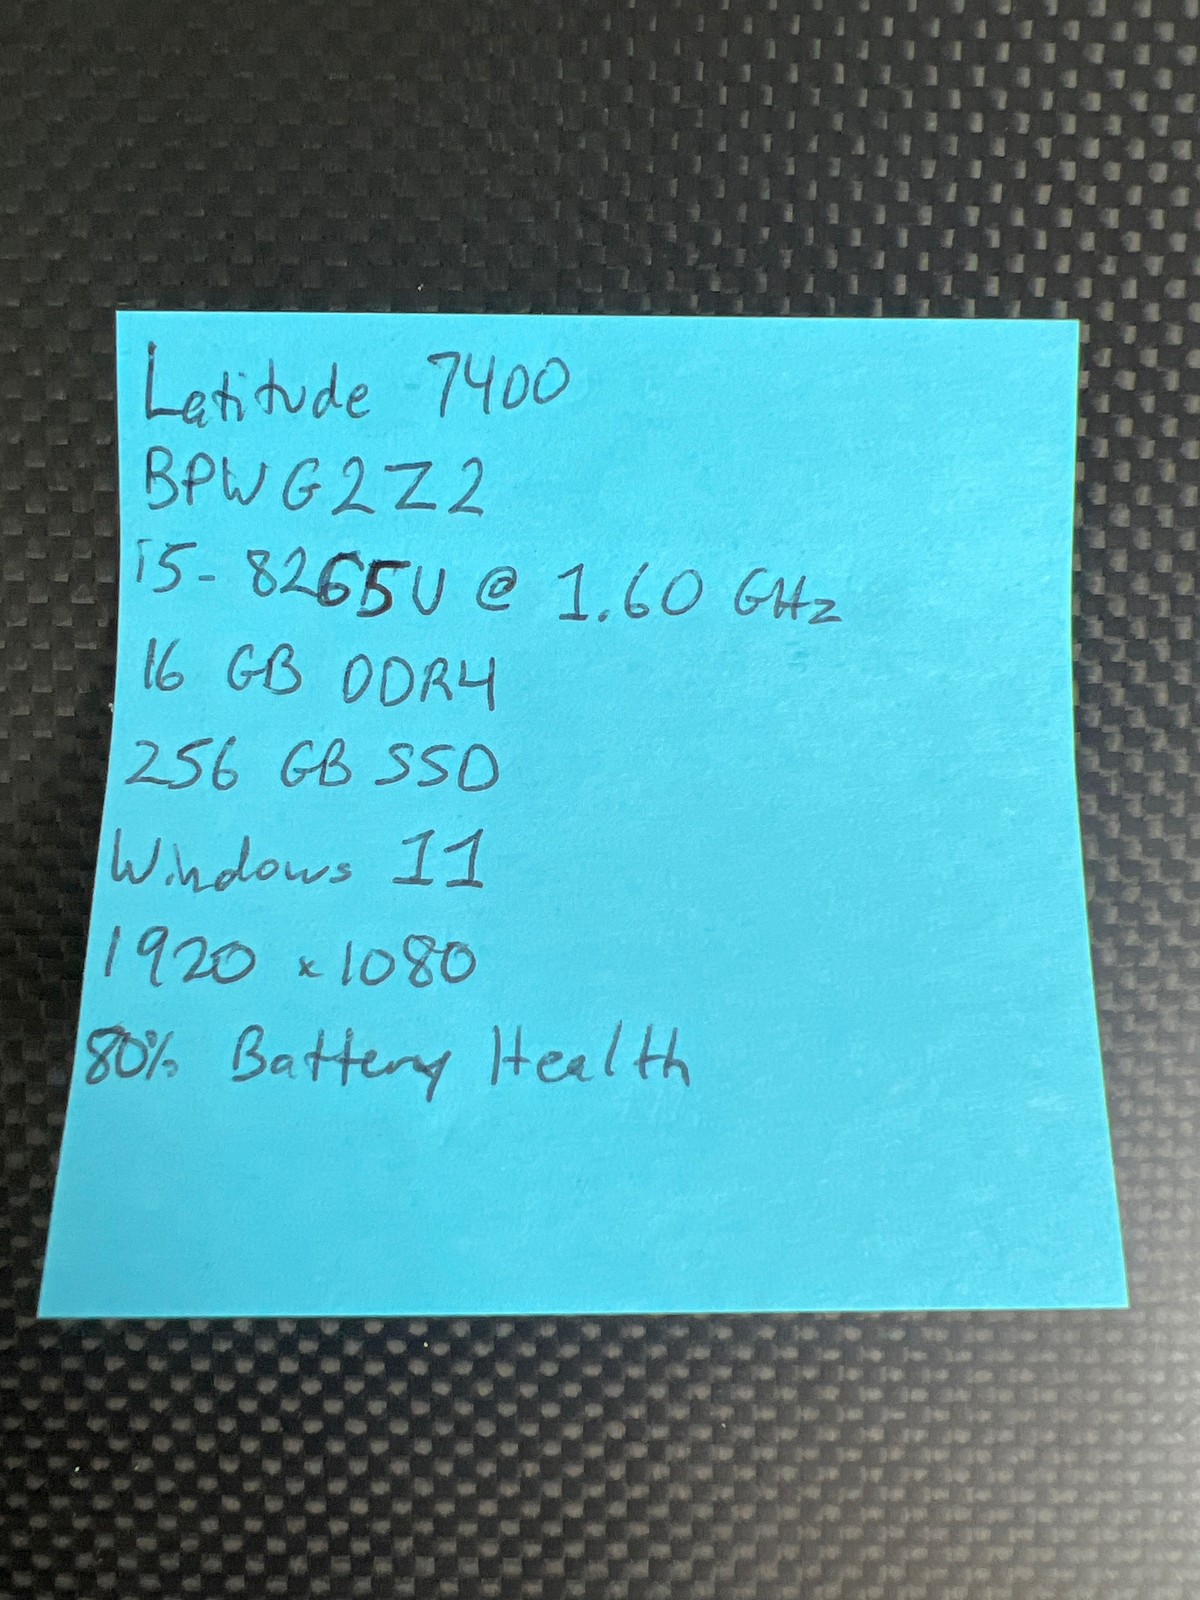 Latitude 7400
BPWG2Z2
i5-8265U @ 1.60 GHz
16 GB DDR4
256 GB SSD
Windows 11
1920 x 1080
80% Battery Health